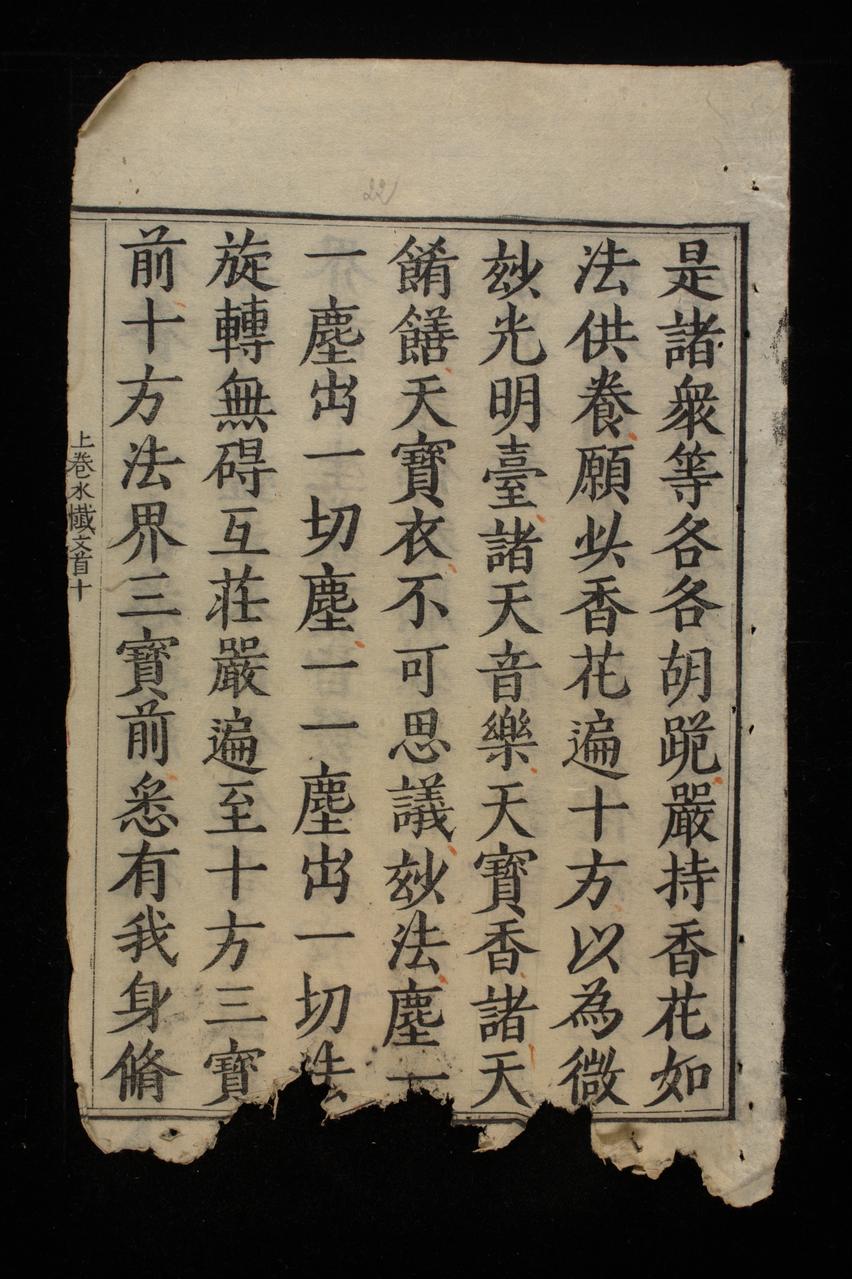 是諸衆等各各胡跪嚴持香花如
法供養願此香花遍十方以為微
玅光明臺諸天音樂天寶香諸天
餚饍天寶衣不可思議玅法塵一
一塵出一切塵一一塵出一切法
旋轉無碍互莊嚴遍至十方三寶
前十方法界三寶前悉有我身脩
上卷水懺文首十
22